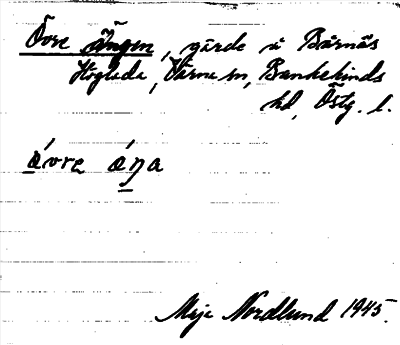 Övre ängen, gärde å Bärnäs
Högleda, Värna sn, Bankekinds
hd, Östg. l.
óvre áŋa
Maja Nordlund 1945.